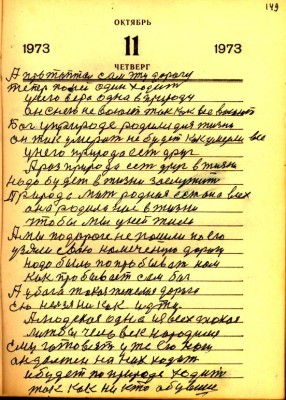 149
ОКТЯБРЬ
1973 11 1973
ЧЕТВЕРГ
А протоптал сам эту дорогу
тепер по ней один ходит
у него вера одна в природу
он с нею не воюет так как все воюют
Бог у природе родился для жизни
он так умерать не будет как умерли все
у него природа ест друг
А раз природа ест друг в жизни
надо будет в жизни заслужит
Природа мат родная ест она всех
она родила нас в жизни
чтобы мы у ней жили
А мы по дороге не пошли по его
узяли свою намеченую дорогу
надо было попробыват нам
как пробывает сам бог
А у бога такая тяжелая дорога
ею нелзя никак идти
А людская одна и у всех такая
лиш бы человек народился
ему готовят уже его
он делится на них ходит
и будет по природе ходит
так как никто обувши